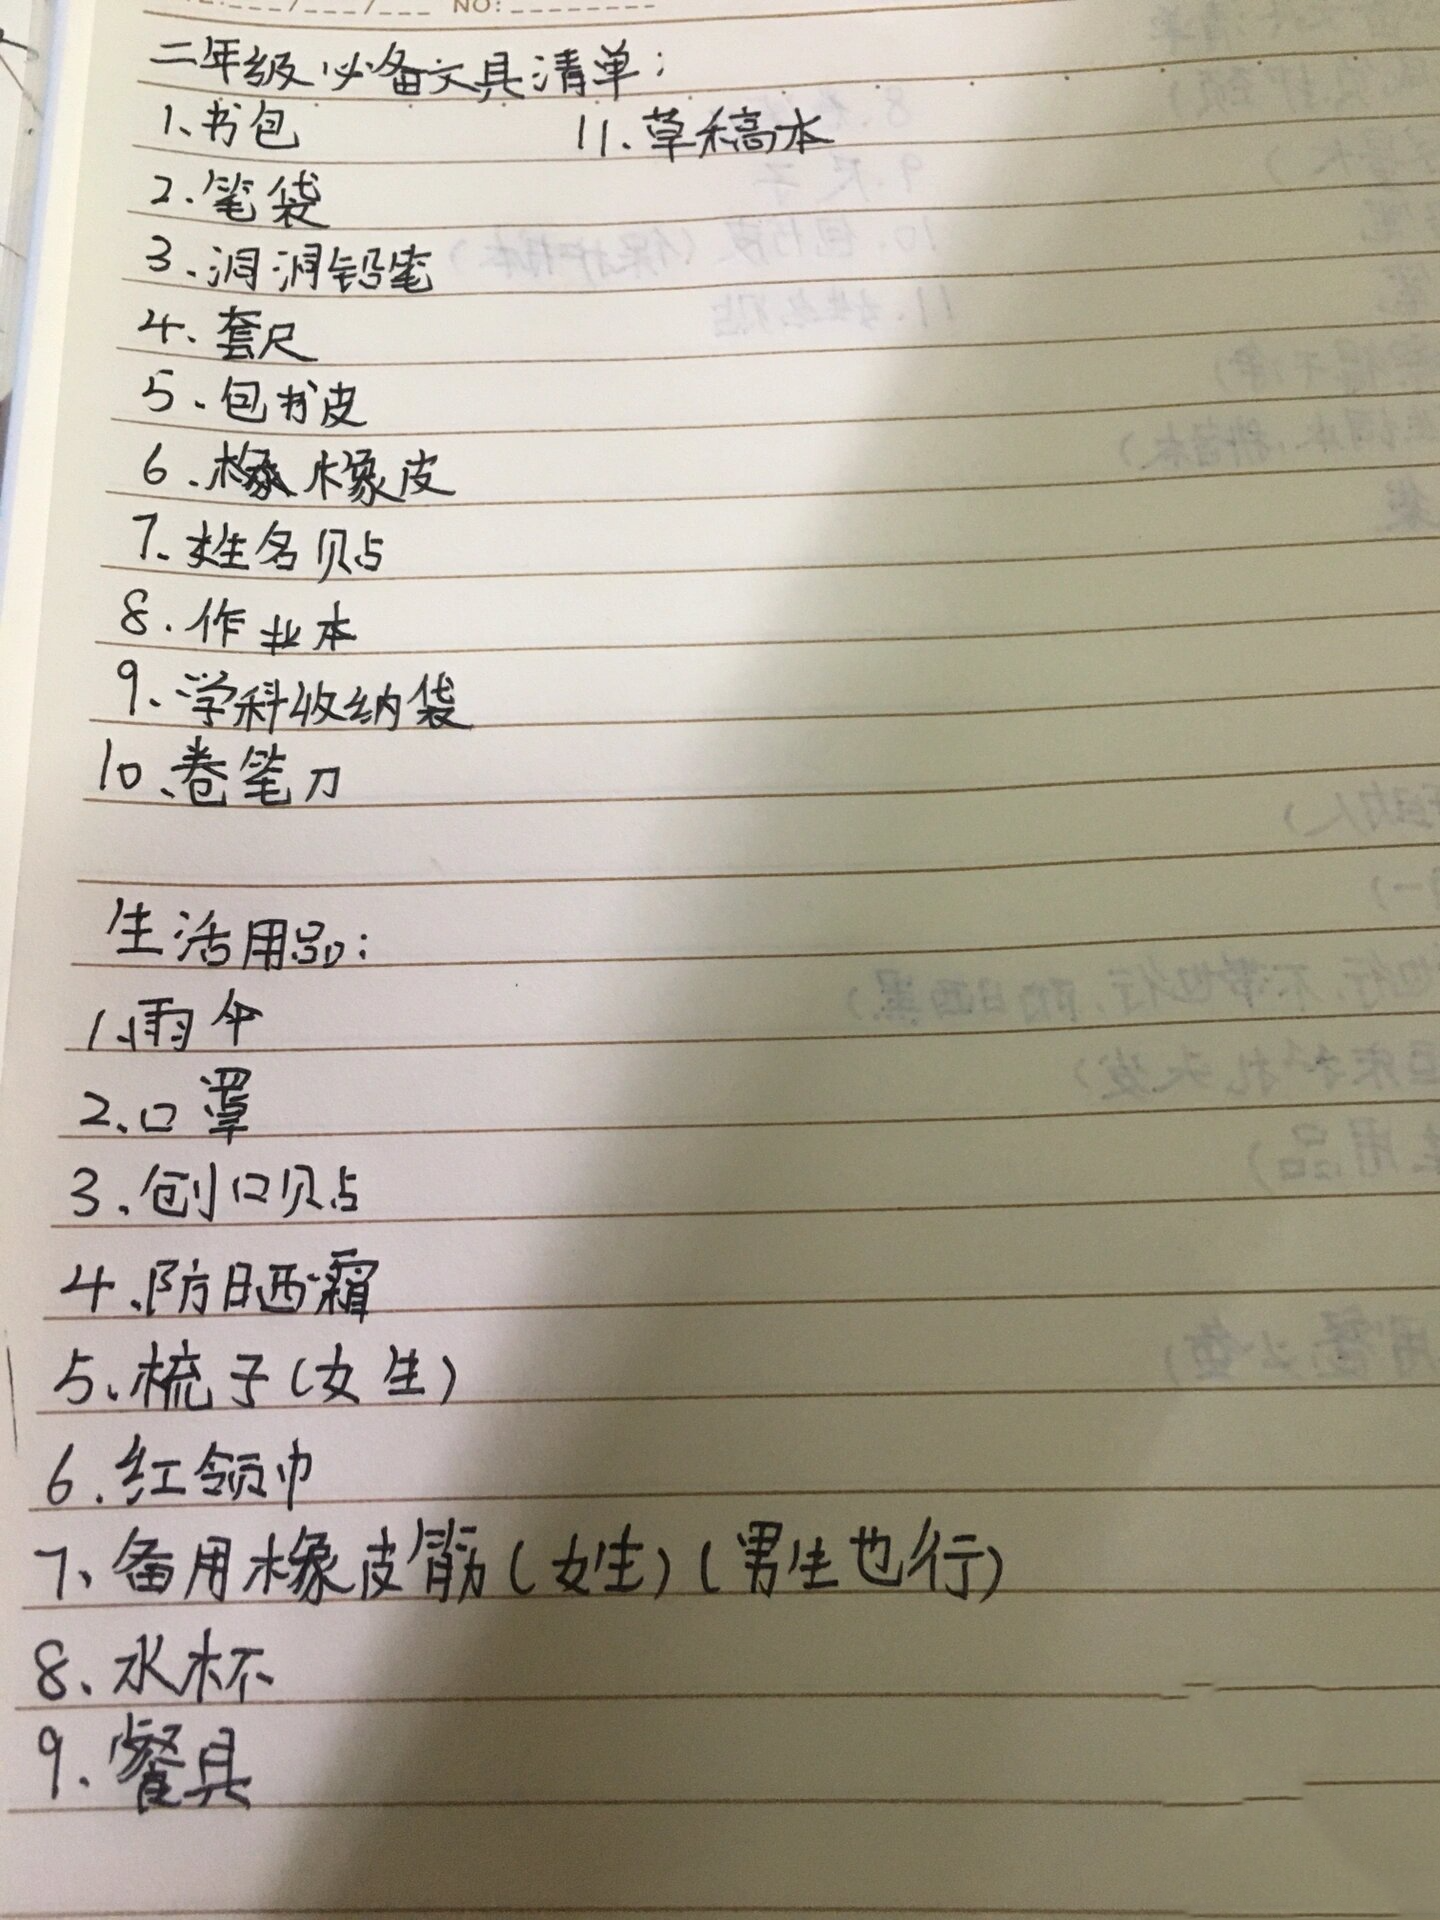 NO:
二年级必备文具清单:
1、书包
11、草稿本
2、笔袋
3、洞洞铅笔
4、套尺
5、包书皮
6、橡皮
7、姓名贴
8、作业本
9、学科收纳袋
10、卷笔刀
生活用品:
1、雨伞
2、口罩
3、创口贴
4、防晒霜
5、梳子(女生)
6、红领巾
7、备用橡皮筋(女生)(男生也行)
8、水杯
9、餐具